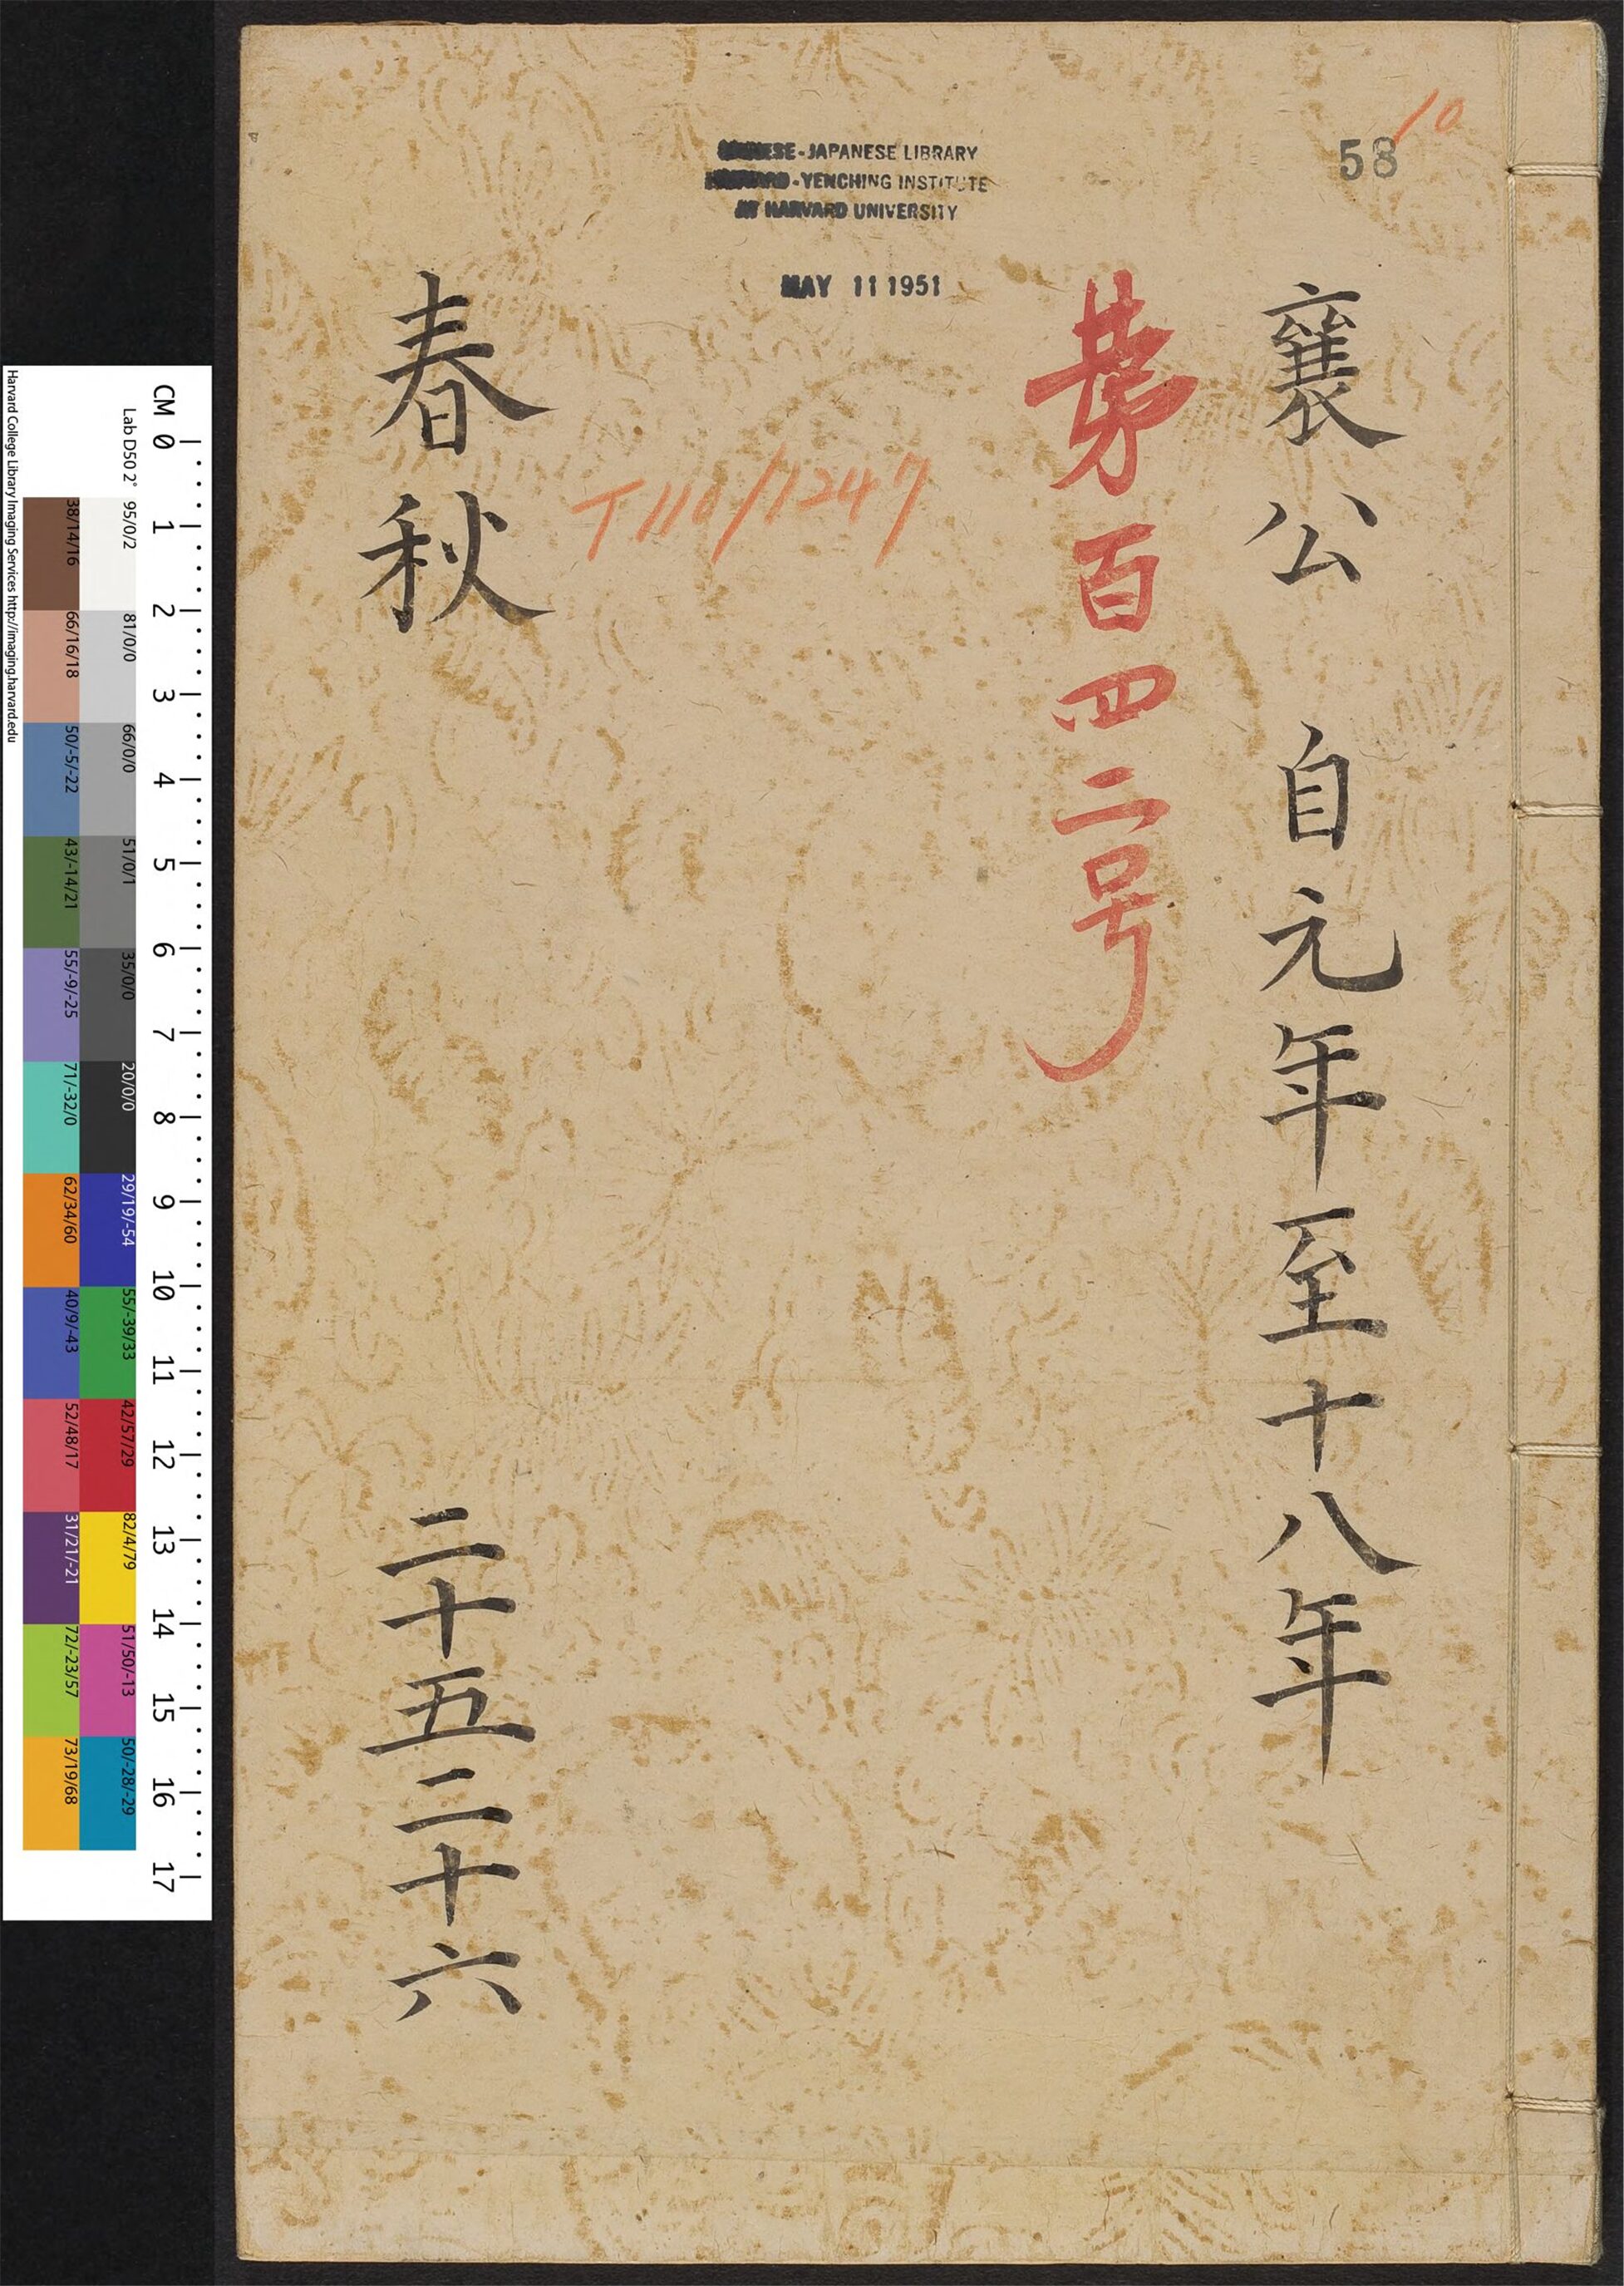 58
10
CHINESE-JAPANESE LIBRARY
HARVARD-YENCHING INSTITUTE
AT HARVARD UNIVERSITY
MAY 11 1951
襄公 自元年至十八年
苐百四二号
T110/1247
春秋
二十五二十六
CM 0 1 2 3 4 5 6 7 8 9 10 11 12 13 14 15 16 17
Lab D50 2° 95/0/2 81/0/0 66/0/0 51/0/1 35/0/0 20/0/0 29/19/-54 55/-39/33 42/57/29 82/4/79 51/50/-13 50/-28/-29
38/14/16 66/16/18 50/-5/-22 43/-14/21 55/-9/-25 71/-32/0 62/34/60 40/9/-43 52/48/17 31/21/-21 72/-23/57 73/19/68
Harvard College Library Imaging Services http://imaging.harvard.edu